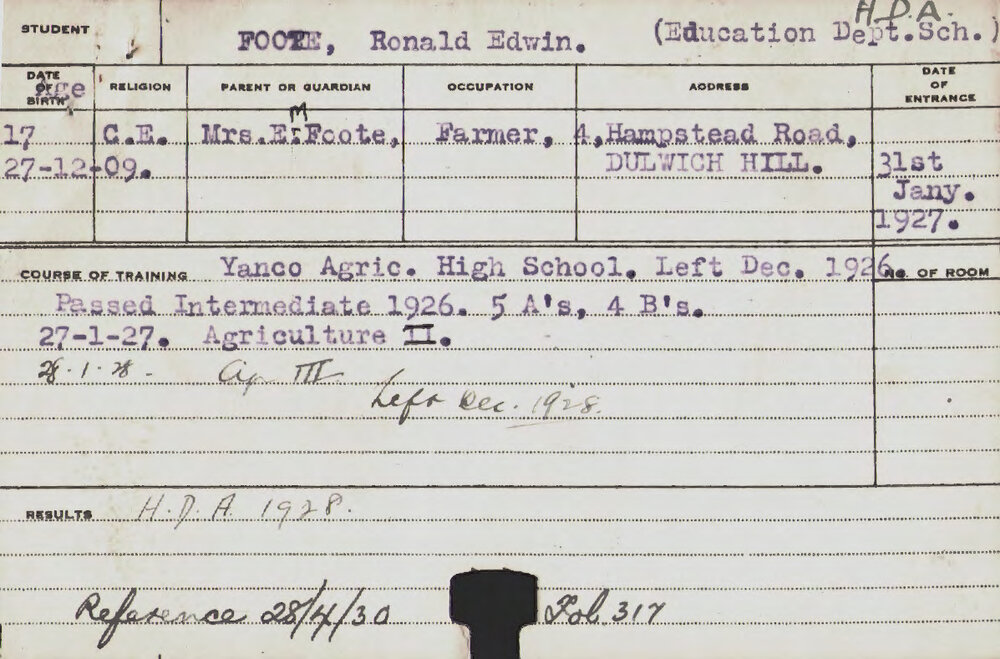 H.D.A.
STUDENT FOOTE, Ronald Edwin. (Education Dept.Sch.)
DATE OF BIRTH Age RELIGION PARENT OR GUARDIAN OCCUPATION ADDRESS DATE OF ENTRANCE
17 C.E. Mrs.E.M Foote, Farmer, 4,Hampstead Road,
27-12-09. DULWICH HILL. 31st
Jany.
1927.
COURSE OF TRAINING Yanco Agric. High School. Left Dec. 1926. NO. OF ROOM
Passed Intermediate 1926. 5 A's, 4 B's.
27-1-27. Agriculture II.
28.1.28. Ag III
Left Dec. 1928.
RESULTS H.D.A. 1928.
Reference 28/4/30 Fol. 317